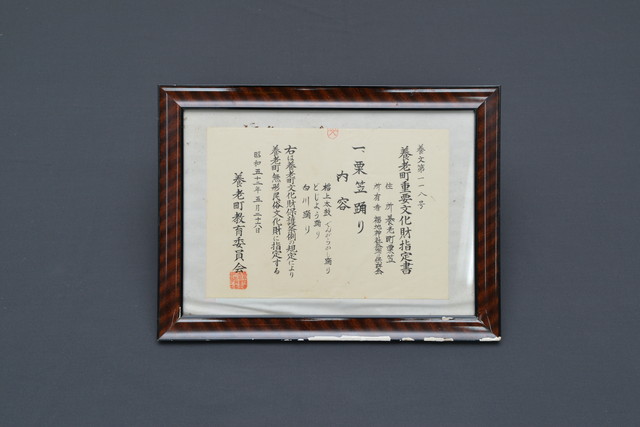 養文第一一八号
養老町重要文化財指定書
住所 養老町栗笠
所有者
一、栗笠踊り
内容
踊り
どじょう踊り
白川踊り
右は養老町文化財保護条例の規定により
養老町無形民俗文化財に指定する
昭和五十二年五月二十六日
養老町教育委員会